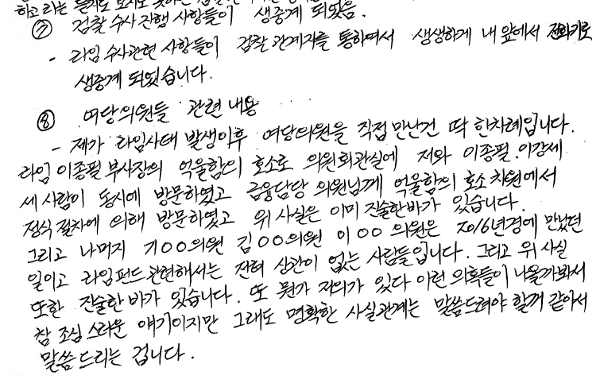 ⑦ 검찰 수사 진행 사항들이 생중계 되었음.
- 라임 수사관련 사항들이 검찰 관계자를 통하여서 생생하게 내 앞에서 전화기로
생중계 되었습니다.
⑧ 여당의원들 관련 내용
- 제가 라임사태 발생이후 여당의원을 직접 만난건 딱 한차례입니다.
라임 이종필 부사장의 억울함의 호소로 의원회관실에 저와 이종필. 이강세
세 사람이 동시에 방문하였고 금융담당 의원님께 억울함의 호소 차원에서
정식 절차에 의해 방문하였고 위 사실은 이미 진술한바가 있습니다.
그리고 나머지 기○○의원 김○○의원 이○○의원은 2016년경에 만났던
일이고 라임펀드 관련해서는 전혀 상관이 없는 사람들입니다. 그리고 위 사실
또한 진술한 바가 있습니다. 또 뭔가 저의가 있다 이런 의혹들이 나올가봐서
참 조심스러운 얘기이지만 그래도 명확한 사실관계는 말씀드려야 할꺼 같아서
말씀드리는 겁니다.